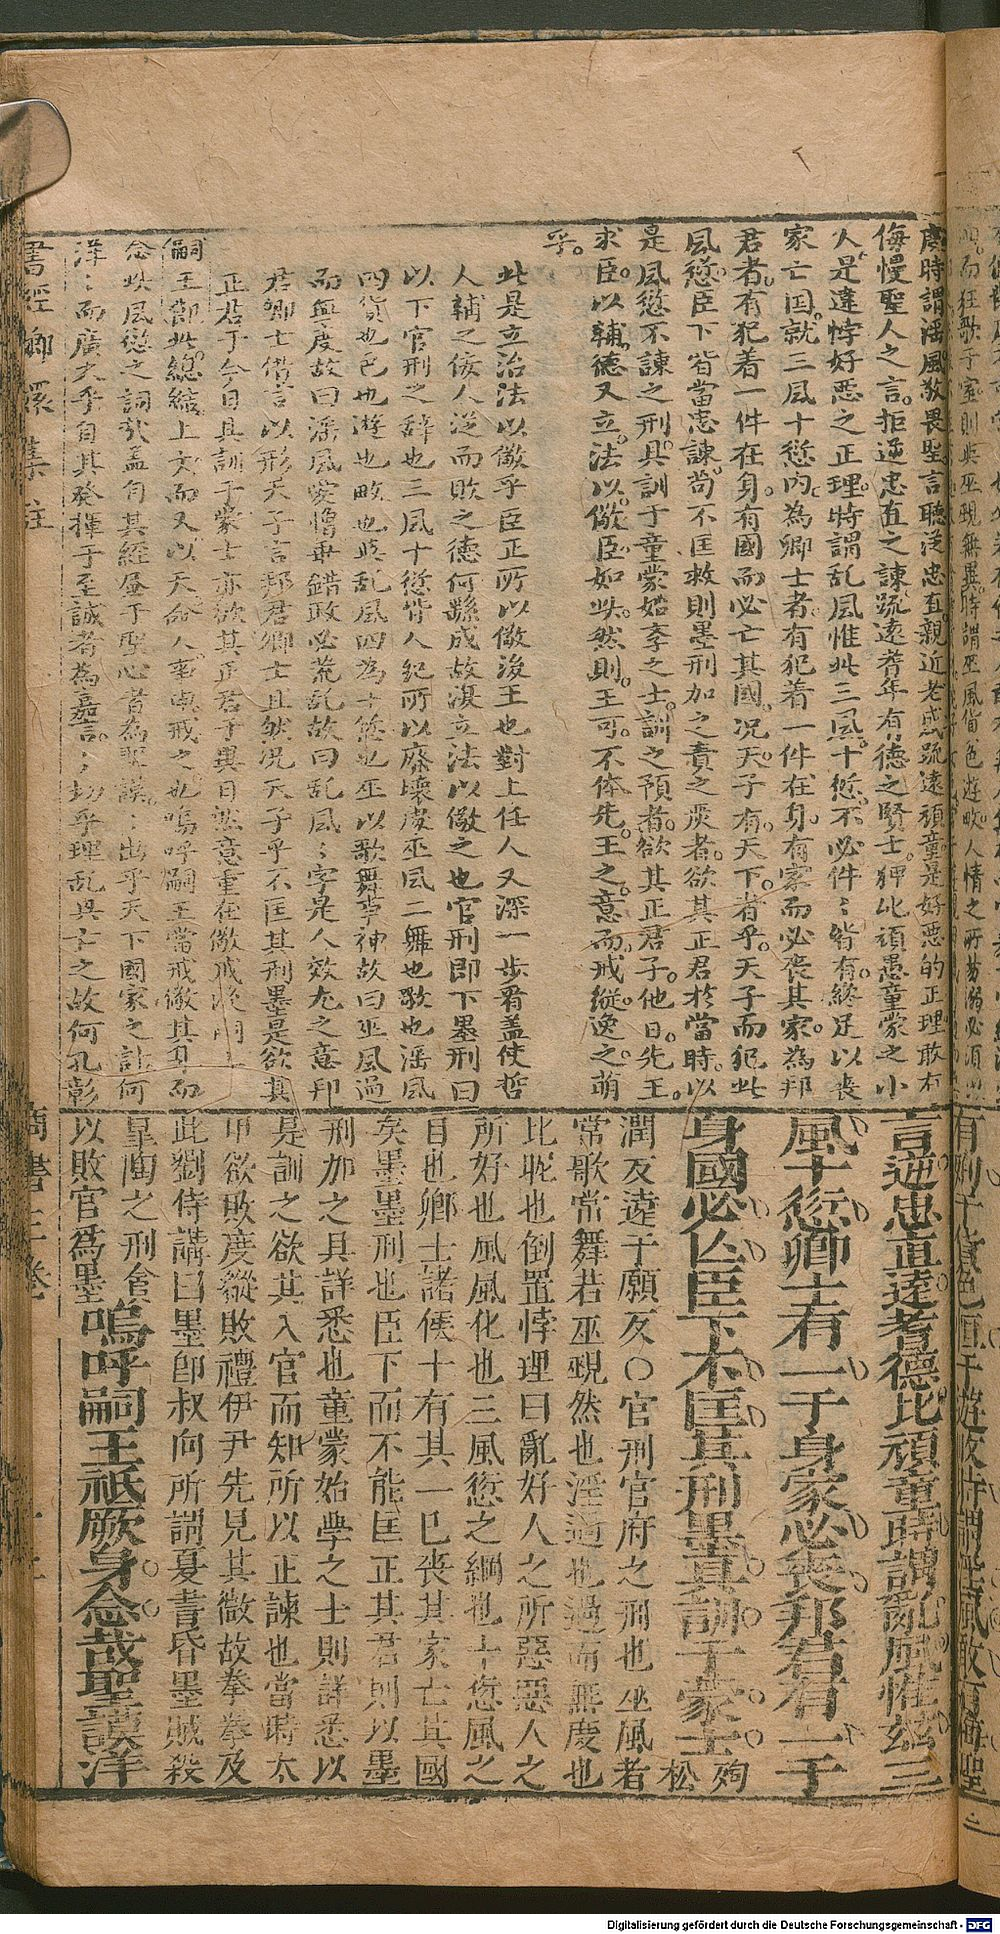 度時謂淫風敢畏聖言聽從忠直親近老成疏遠頑童是好惡的正理敢有
侮慢聖人之言拒逆忠直之諫疏遠耆年有德之賢士狎比頑愚童蒙之小
人是違悖好惡之正理特謂乱風惟此三風十愆不必件〻皆有終足以丧
家亡囯就三風十愆内為卿士者有犯着一件在身有家而必丧其家為邦
君者有犯着一件在身有國而必亡其國况天子有天下者乎天子而犯此
風愆臣下皆當忠諫苟不匡救則墨刑加之責之嚴者欲其正君於當時以
是風愆不諫之刑具訓于童蒙始李之士訓之預者欲其正君子他日先王
求臣以輔德又立法以儆臣如此然則王可不体先王之意而戒縦逸之萌
乎
此是立治法以儆乎臣正所以儆後王也對上任人又深一步看盖使哲
人輔之倭人从而敗之德何繇成故湏立法以儆之也官刑即下墨刑曰
以下官刑之辞也三風十愆皆人紀所以廢壞處巫風二舞也歌也淫風
四貨也色也遊也畋也乱風四為十愆也巫以歌舞事神故曰巫風過
而無度故曰淫風愛憎乖錯政必荒乱故曰乱風〻字是人效尤之意邦
君卿士借言以形天子言邦君卿士且然况天子乎不匡其刑墨是欲其
正君于今日具訓于蒙士亦欲其正君于異日然意重在儆戒後嗣上
嗣王節此總結上文而又以天命人事申戒之也嗚呼嗣王當戒儆其身而
念此風愆之詞哉盖自其經歷乎聖心者為聖謨〻出乎天下國家之計何
洋〻而廣大乎自其發揮于至誠者為嘉言〻切乎理乱興亡之故何孔彰
言逆忠直遠耆德比頑童時謂亂風惟茲三
風十愆卿士有一于身家必丧邦君有一于
身國必亾臣下不匡其刑墨具訓于蒙士 殉松
潤反遠于願反〇官刑官府之刑也巫風者
常歌常舞若巫覡然也淫過也過而無度也
比昵也倒置悖理曰亂好人之所惡惡人之
所好也風風化也三風愆之綱也十愆風之
目也卿士諸侯十有其一已丧其家亡其國
矣墨墨刑也臣下而不能匡正其君則以墨
刑加之具詳悉也童蒙始學之士則詳悉以
是訓之欲其入官而知所以正諫也當時太
甲欲敗度縱敗禮伊尹先見其微故拳拳及
此劉侍講曰墨卽叔向所謂夏書昏墨賊殺
皐陶之刑貪以敗官爲墨嗚呼嗣王祗厥身念哉聖謨洋
書經
Digitalisierung gefördert durch die Deutsche Forschungsgemeinschaft - DFG